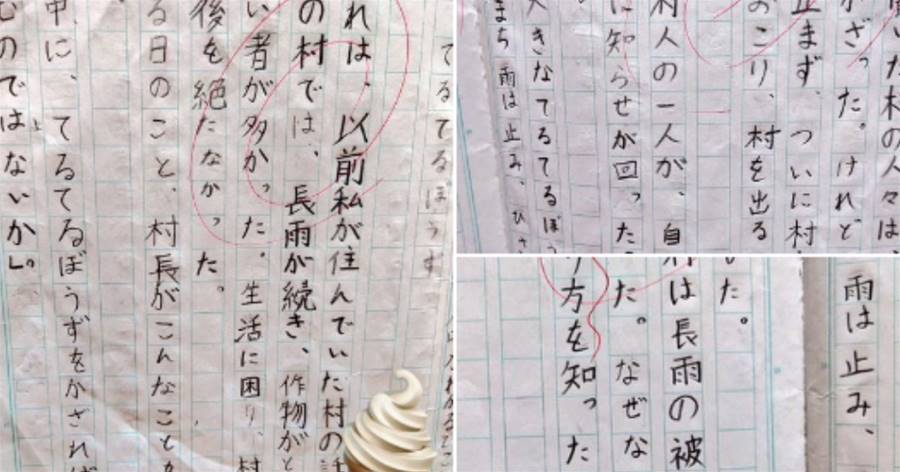 てるてるぼうず
れは、以前私が住んでいた村の
の村では、長雨が続き、作物が
い者が多かった。生活に困り、村
後を絶たなかった。
る日のこと、村長がこんなことを
中に、てるてるぼうずをかざれば
むのではないか」。
た村の人々は、
ざった。けれど
止まず、ついに村
おこり、村を出る
村人の一人が、自
に知らせが回った
きなてるてるぼう
まち雨は止み、ひさ
雨は止み、
た。
は長雨の被
た。なぜな
方を知った